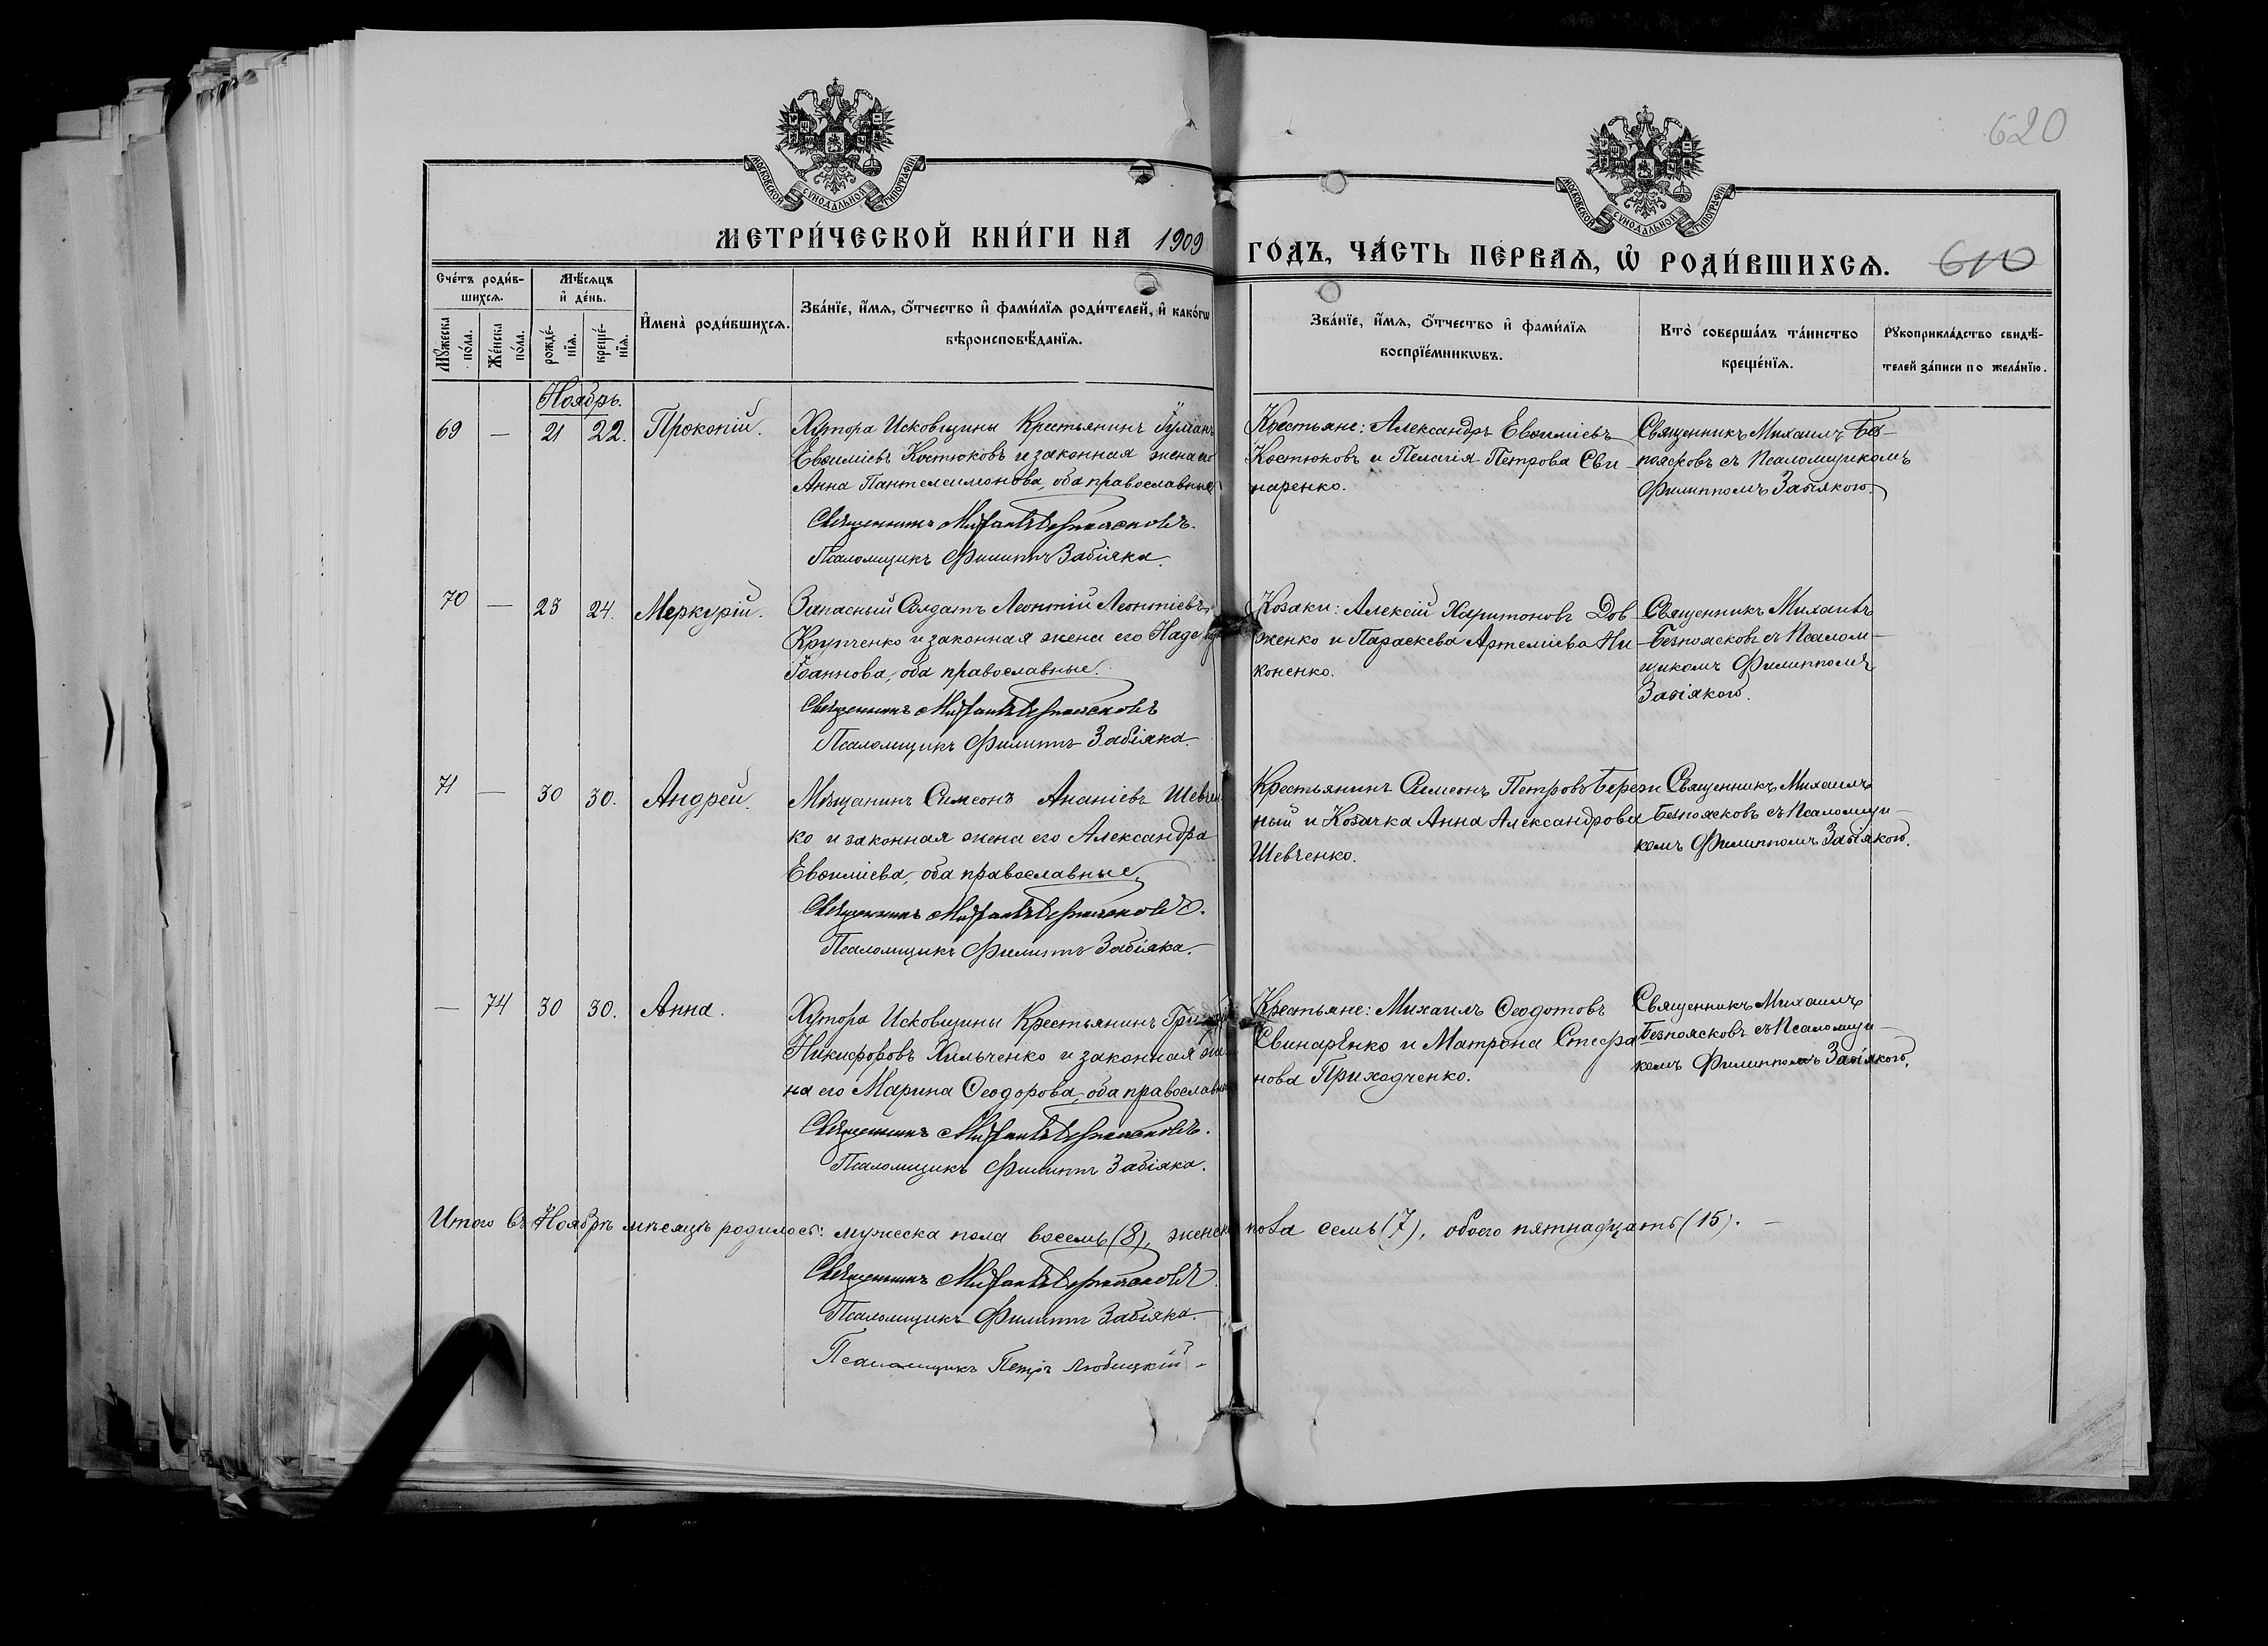 620
МОСКОВСКОЙ СѴНОДАЛЬНОЙ ТИПОГРАФІИ
МОСКОВСКОЙ СѴНОДАЛЬНОЙ ТИПОГРАФІИ
МЕТРИ́ЧЕСКОЙ КНИ́ГИ НА 1909
ГО́ДЪ, ЧА́СТЬ ПЕ́РВАѦ, Ѡ҆ РОДИ́ВШИХСѦ.
610
Счётъ роди́в-
шихсѧ.
Мѣ́сѧцъ
и҆ де́нь.
Мꙋ́жеска
по́ла.
Же́нска
по́ла.
рожде́-
нїѧ.
креще́-
нїѧ.
И҆мена̀ роди́вшихсѧ.
Зва́нїе, и҆́мѧ, ѻ҆́тчество и҆ фами́лїѧ роди́телей, и҆ како́гѡ
вѣроисповѣ́данїѧ.
Зва́нїе, и҆́мѧ, ѻ҆́тчество и҆ фами́лїѧ
воспрїе́мникѡвъ.
Кто̀ соверша́лъ та́инство
креще́нїѧ.
Рꙋкоприкла́дство свидѣ́-
телей за́писи по жела́нїю.
Ноябрь.
69 — 21 22. Прокопій.
Хутора Исковщины Крестьянинъ Іуліанъ
Евѳиміевъ Костюковъ и законная жена его
Анна Пантелеимонова, оба православные
Священникъ Михаилъ Безпоясковъ.
Псаломщикъ Филиппъ Забіяка.
Крестьяне: Александръ Евѳиміевъ
Костюковъ и Пелагія Петрова Сви-
наренко.
Священникъ Михаилъ Без-
поясковъ съ Псаломщикомъ
Филиппомъ Забіякою.
70 — 23 24. Меркурій.
Запасный Солдатъ Леонтій Леонтіевъ
Крупченко и законная жена его Надежда
Іоаннова, оба православные.
Священникъ Михаилъ Безпоясковъ
Псаломщикъ Филиппъ Забіяка.
Козаки: Алексій Харитоновъ Дов
женко и Параскева Артеміева Ни-
коненко.
Священникъ Михаилъ
Безпоясковъ съ Псалом-
щикомъ Филиппомъ
Забіякою.
71 — 30 30. Андрей.
Мѣщанинъ Симеонъ Ананіевъ Шевчен
ко и законная жена его Александра
Евѳиміева, оба православные.
Священникъ Михаилъ Безпоясковъ.
Псаломщикъ Филиппъ Забіяка.
Крестьянинъ Симеонъ Петровъ Береж
ный и Козачка Анна Александрова
Шевченко.
Священникъ Михаилъ
Безпоясковъ съ Псаломщи-
комъ Филиппомъ Забіякою.
— 74 30 30. Анна.
Хутора Исковщины Крестьянинъ
Никифоровъ Хильченко и законная же
на его Марина Ѳеодорова, оба православные
Священникъ Михаилъ Безпоясковъ.
Псаломщикъ Филиппъ Забіяка.
Крестьяне: Михаилъ Ѳеодотовъ
Свинаренко и Матрона Стефа
нова Приходченко.
Священникъ Михаилъ
Безпоясковъ съ Псаломщи-
комъ Филиппомъ Забіякою.
Итого въ Ноябрѣ мѣсяцѣ родилось: мужеска пола восемь (8), женска пола семь (7), обоего пятнадцать (15). —
Священникъ Михаилъ Безпоясковъ
Псаломщикъ Филиппъ Забіяка.
Псаломщикъ Петръ Любицкій